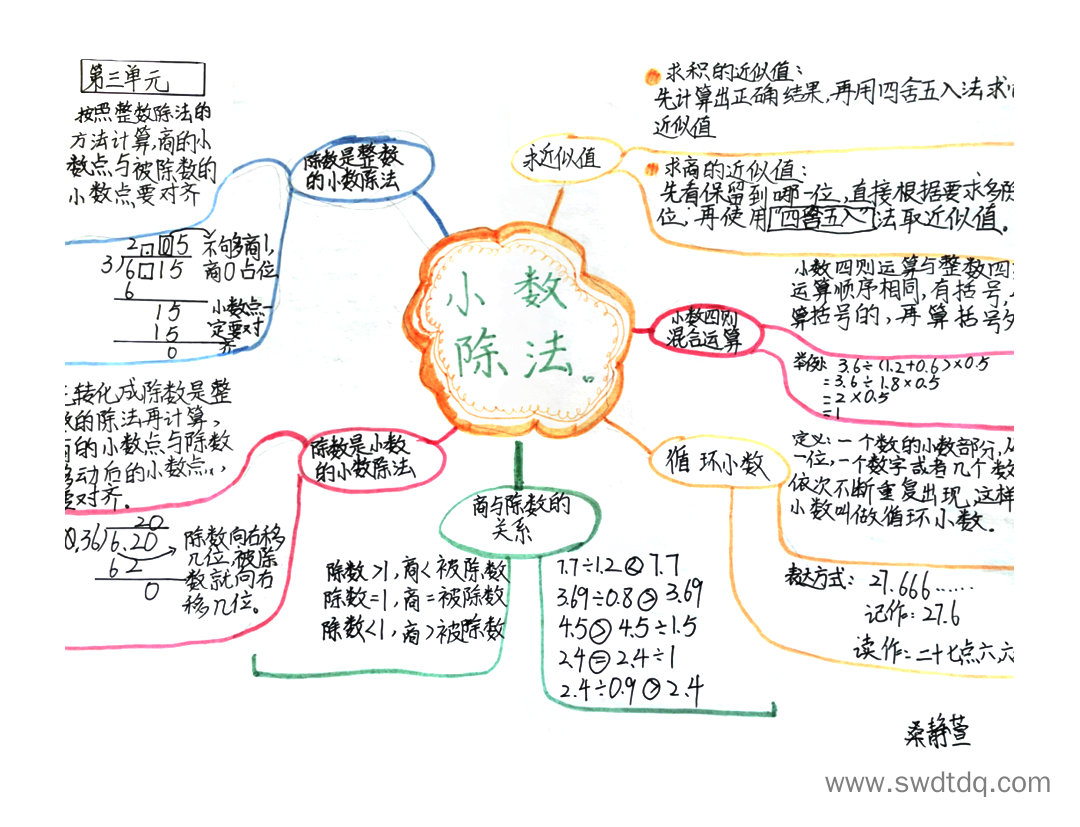 第三单元
按照整数除法的
方法计算,商的小
数点与被除数的
小数点要对齐
除数是整数
的小数除法
2.05
3)6.15
6
15
15
0
不够商1,
商0占位
小数点一
定要对
齐
求近似值
求积的近似值:
先计算出正确结果,再用四舍五入法求
近似值
求商的近似值:
先看保留到哪一位,直接根据要求多除
位.再使用"四舍五入"法取近似值。
小数
除法。
小数四则
混合运算
小数四则运算与整数四
运算顺序相同,有括号,
算括号的,再算括号外
举例: 3.6÷(1.2+0.6)×0.5
=3.6÷1.8×0.5
=2×0.5
=1
转化成除数是整
的除法再计算,
的小数点与除数
移动后的小数点,
要对齐。
除数是小数
的小数除法
0.36)6.20
20
62
0
除数向右移
几位,被除
数就向右
移几位。
商与除数的
关系
除数>1,商<被除数
除数=1,商=被除数
除数<1,商>被除数
7.7÷1.2<7.7
3.69÷0.8>3.69
4.5>4.5÷1.5
2.4=2.4÷1
2.4÷0.9>2.4
循环小数
定义:一个数的小数部分,从
一位,一个数字或者几个数
依次不断重复出现,这样
小数叫做循环小数。
表达方式: 27.666……
记作:27.6
读作:二十七点六六
桑静萱
www.swdtdq.com